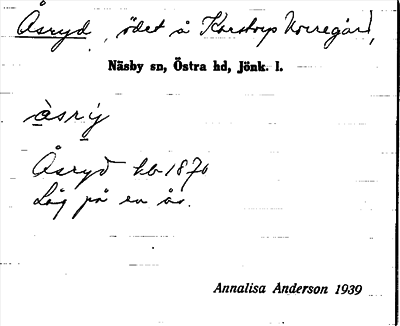 Åsryd, ödet å Karstorps Norregård,
Näsby sn, Östra hd, Jönk. l.
àsrý
Åsryd hb 1870
Låg på en ås.
Annalisa Anderson 1939